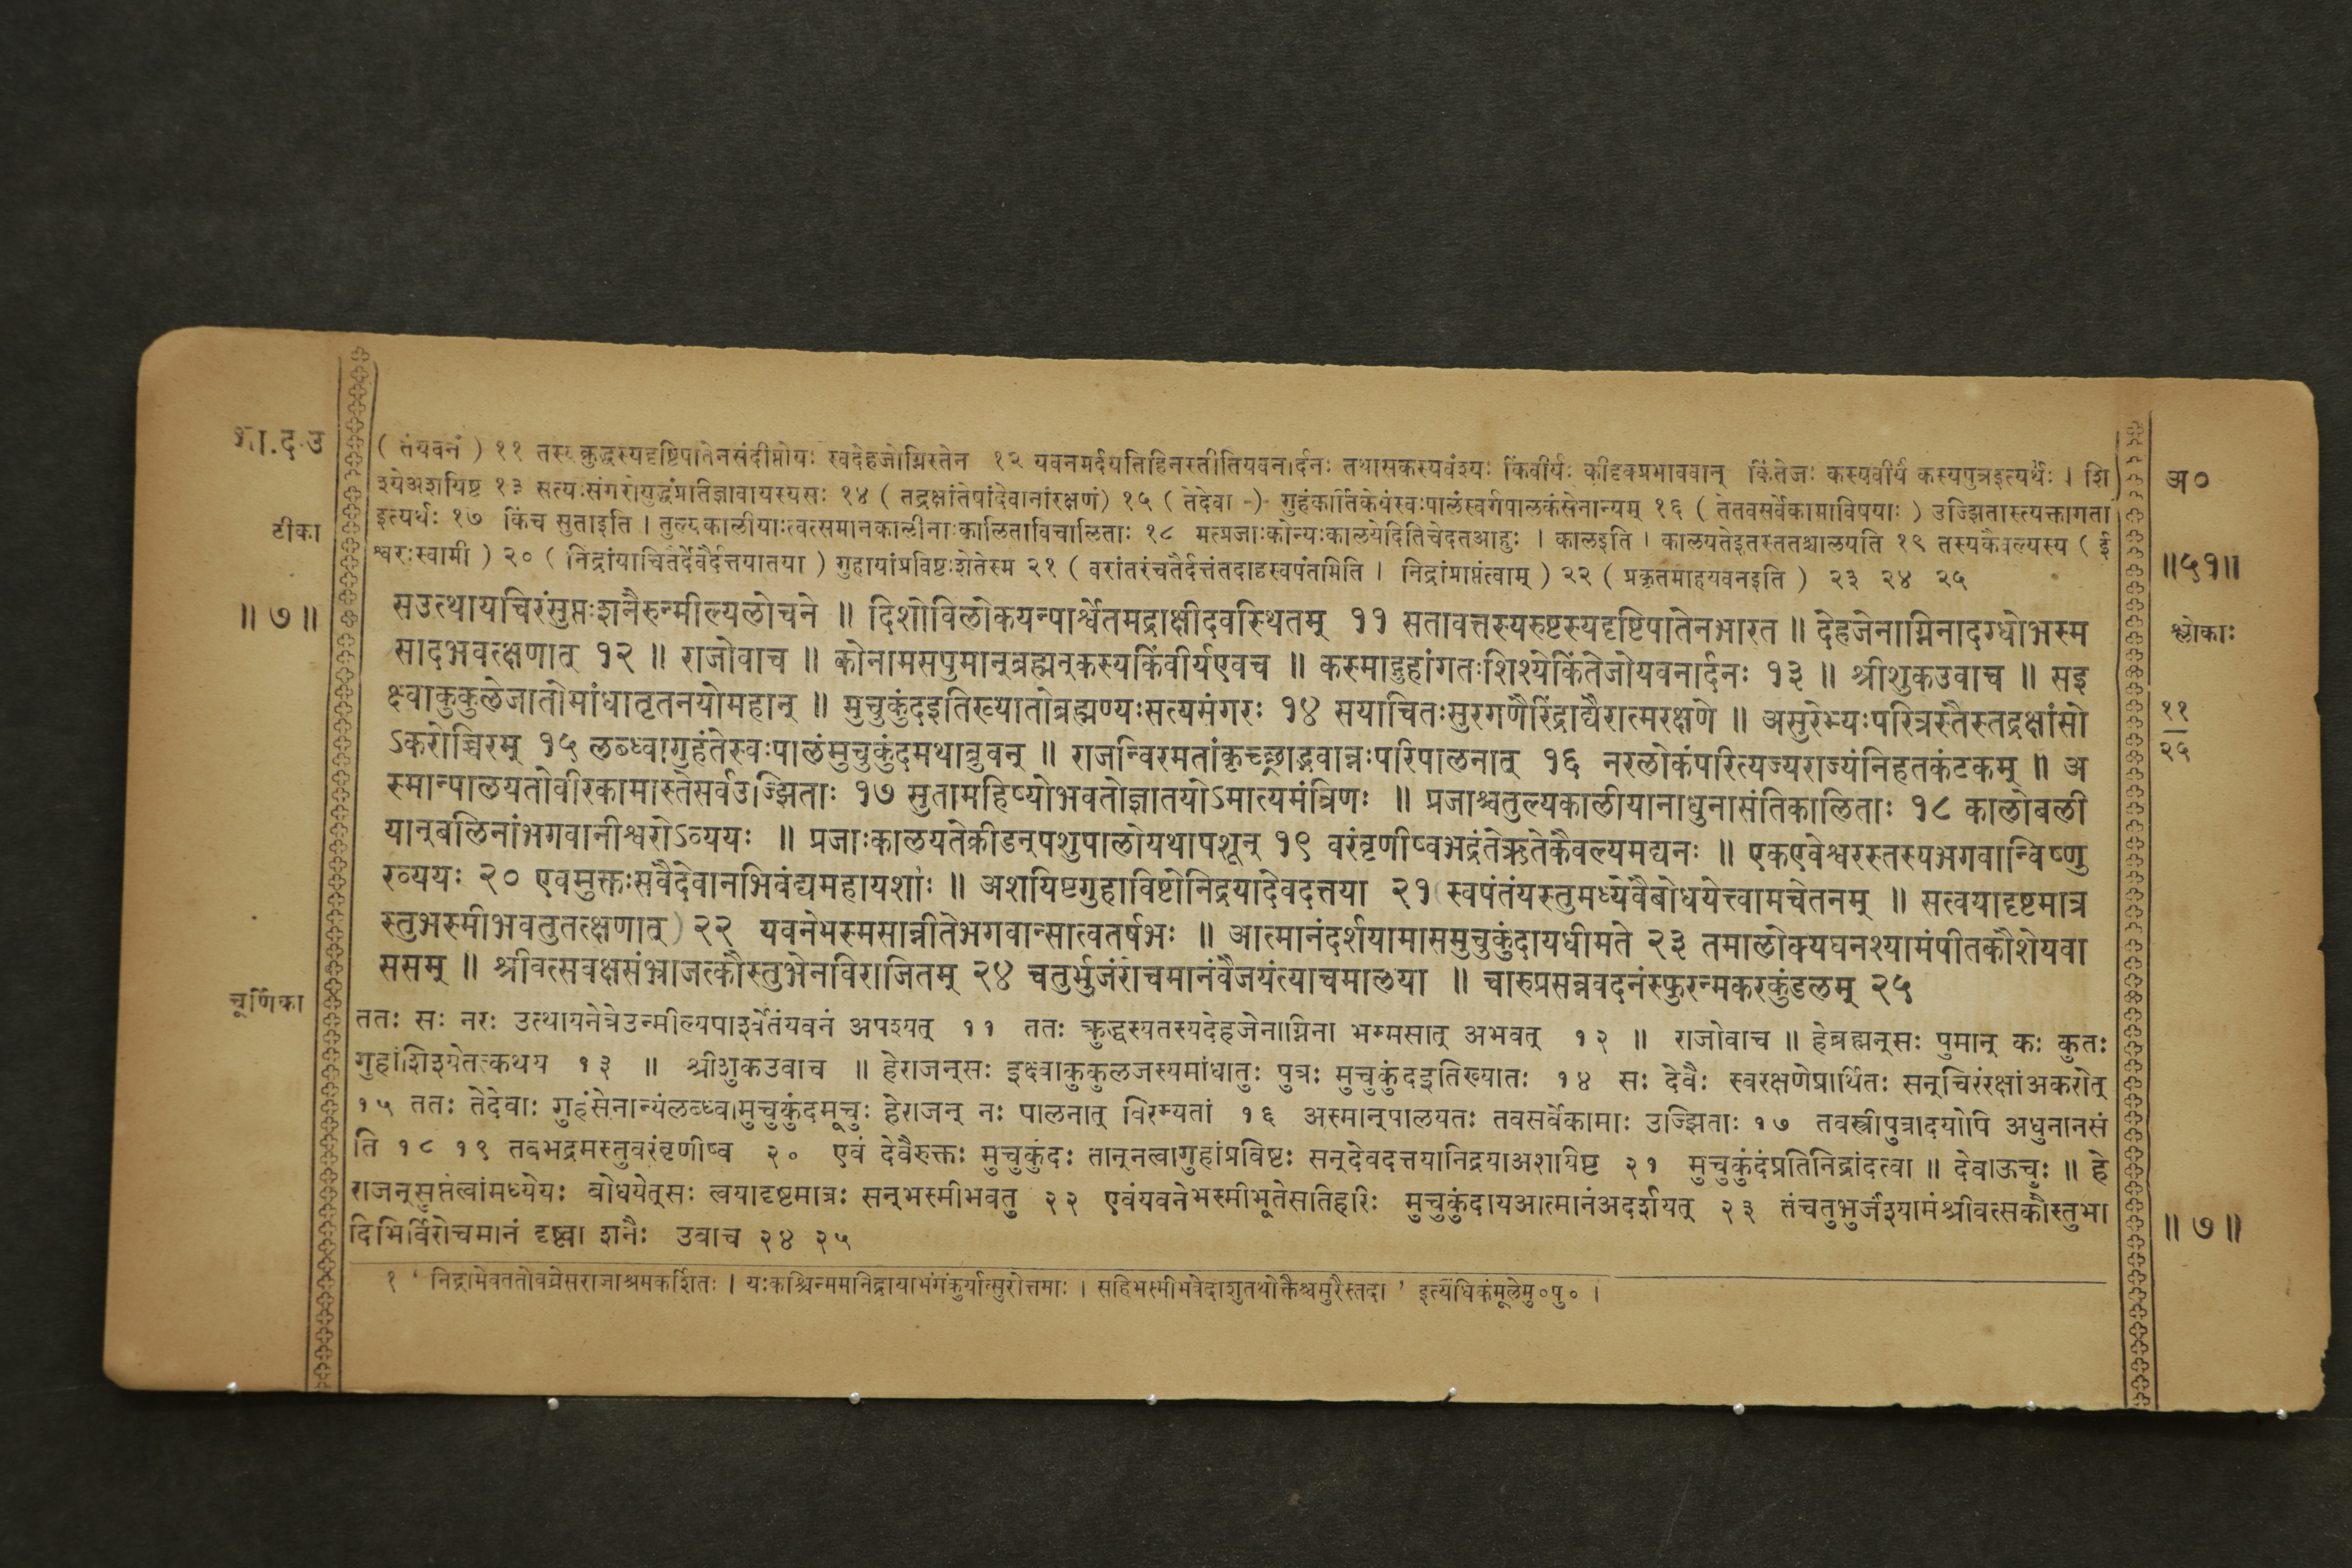 भा.द.उ
( तंयवनं ) ११ तस्य क्रुद्धस्यदृष्टिपातेनसंदीप्तोयः स्वदेहजोग्निस्तेन १२ यवनमर्दयतिहिनस्तीतियवनार्दनः तथासकस्यवंश्यः किंवीर्यः कीदृक्प्रभाववान् किंतेजः कस्यवीर्यं कस्यपुत्रइत्यर्थः । शि
श्येअशयिष्ट १३ सत्यःसंगरोयुद्धंप्रतिज्ञावायस्यसः १४ ( तद्रक्षांतेषांदेवानांरक्षणं) १५ ( तेदेवा -) गुहंकार्तिकेयंस्वःपालंस्वर्गपालकंसेनान्यम् १६ ( तेतवसर्वेकामाविषयाः ) उज्झितास्त्यक्तागता
इत्यर्थः १७ किंच सुताइति । तुल्यकालीयाःत्वत्समानकालीनाःकालिताविचालिताः १८ मत्प्रजाःकोन्यःकालयेदितिचेदतआहुः । कालइति । कालयतेइतस्ततश्चालयति १९ तस्यकैवल्यस्य ( ई
श्वरःस्वामी ) २० ( निद्रांयाचितैर्देवैर्दत्तयातया ) गुहायांप्रविष्टःशेतेस्म २१ ( वरांतरंचतैर्दत्तंतदाहस्वपंतमिति । निद्रांप्राप्तंत्वाम् ) २२ ( प्रकृतमाहयवनइति ) २३ २४ २५
टीका
अ०
॥५१॥
॥ ७ ॥
सउत्थायचिरंसुप्तःशनैरुन्मील्यलोचने ॥ दिशोविलोकयन्पार्श्वेतमद्राक्षीदवस्थितम् ११ सतावत्तस्यरुष्टस्यदृष्टिपातेनभारत ॥ देहजेनाग्निनादग्धोभस्म
सादभवत्क्षणात् १२ ॥ राजोवाच ॥ कोनामसपुमान्ब्रह्मन्कस्यकिंवीर्यएवच ॥ कस्माद्गुहांगतःशिश्येकिंतेजोयवनार्दनः १३ ॥ श्रीशुकउवाच ॥ सइ
क्ष्वाकुकुलेजातोमांधातृतनयोमहान् ॥ मुचुकुंदइतिख्यातोब्रह्मण्यःसत्यसंगरः १४ सयाचितःसुरगणैरिंद्राद्यैरात्मरक्षणे ॥ असुरेभ्यःपरित्रस्तैस्तद्रक्षांसो
ऽकरोच्चिरम् १५ लब्ध्वागुहंतेस्वःपालंमुचुकुंदमथाब्रुवन् ॥ राजन्विरमतांकृच्छ्राद्भवान्नःपरिपालनात् १६ नरलोकंपरित्यज्यराज्यंनिहतकंटकम् ॥ अ
स्मान्पालयतोवीरकामास्तेसर्वउज्झिताः १७ सुतामहिष्योभवतोज्ञातयोऽमात्यमंत्रिणः ॥ प्रजाश्चतुल्यकालीयानाधुनासंतिकालिताः १८ कालोबली
यान्बलिनांभगवानीश्वरोऽव्ययः ॥ प्रजाःकालयतेक्रीडन्पशुपालोयथापशून् १९ वरंवृणीष्वभद्रंतेऋतेकैवल्यमद्यनः ॥ एकएवेश्वरस्तस्यभगवान्विष्णु
रव्ययः २० एवमुक्तःसवैदेवानभिवंद्यमहायशाः ॥ अशयिष्टगुहाविष्टोनिद्रयादेवदत्तया २१ (स्वपंतंयस्तुमध्येवैबोधयेत्त्वामचेतनम् ॥ सत्वयादृष्टमात्र
स्तुभस्मीभवतुतत्क्षणात्) २२ यवनेभस्मसान्नीतेभगवान्सात्वतर्षभः ॥ आत्मानंदर्शयामासमुचुकुंदायधीमते २३ तमालोक्यघनश्यामंपीतकौशेयवा
ससम् ॥ श्रीवत्सवक्षसंभ्राजत्कौस्तुभेनविराजितम् २४ चतुर्भुजंरोचमानंवैजयंत्याचमालया ॥ चारुप्रसन्नवदनंस्फुरन्मकरकुंडलम् २५
श्लोकाः
११
२५
चूर्णिका
ततः सः नरः उत्थायनेत्रेउन्मील्यपार्श्वेतंयवनं अपश्यत् ११ ततः क्रुद्धस्यतस्यदेहजेनाग्निना भस्मसात् अभवत् १२ ॥ राजोवाच ॥ हेब्रह्मन्सः पुमान् कः कुतः
गुहांशिश्येतत्कथय १३ ॥ श्रीशुकउवाच ॥ हेराजन्सः इक्ष्वाकुकुलजस्यमांधातुः पुत्रः मुचुकुंदइतिख्यातः १४ सः देवैः स्वरक्षणेप्रार्थितः सन्चिरंरक्षांअकरोत्
१५ ततः तेदेवाः गुहंसेनान्यंलब्ध्वामुचुकुंदमूचुः हेराजन् नः पालनात् विरम्यतां १६ अस्मान्पालयतः तवसर्वेकामाः उज्झिताः १७ तवस्त्रीपुत्रादयोपि अधुनानसं
ति १८ १९ तवभद्रमस्तुवरंवृणीष्व २० एवं देवैरुक्तः मुचुकुंदः तान्नत्वागुहांप्रविष्टः सन्देवदत्तयानिद्रयाअशयिष्ट २१ मुचुकुंदंप्रतिनिद्रांदत्वा ॥ देवाऊचुः ॥ हे
राजन्सुप्तंत्वांमध्येयः बोधयेत्सः त्वयादृष्टमात्रः सन्भस्मीभवतु २२ एवंयवनेभस्मीभूतेसतिहरिः मुचुकुंदायआत्मानंअदर्शयत् २३ तंचतुर्भुजंश्यामंश्रीवत्सकौस्तुभा
दिभिर्विरोचमानं दृष्ट्वा शनैः उवाच २४ २५
॥ ७ ॥
१ ' निद्रामेवततोवव्रेसराजाश्रमकर्शितः । यःकश्चिन्ममनिद्रायाभंगंकुर्यात्सुरोत्तमाः । सहिभस्मीभवेदाशुतथोक्तैश्चसुरैस्तदा ' इत्यधिकंमूलेमु०पु० ।